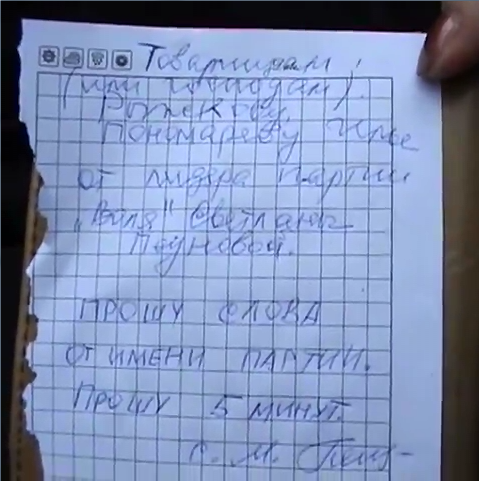 Товарищам
(или господам).
Рыжкову,
Пономарёву Илье
от лидера партии
„Воля" Светланы
Пеуновой.
ПРОШУ СЛОВА
ОТ ИМЕНИ ПАРТИИ.
ПРОШУ 5 МИНУТ.
С. М. Пеун-